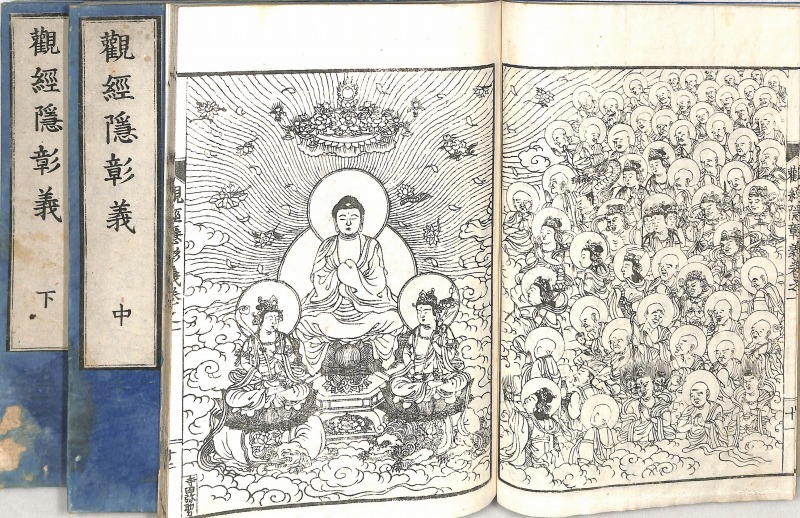 觀經隱彰義
下
觀經隱彰義
中
觀經隱彰義卷之一
十一
觀經隱彰義卷之一
十二